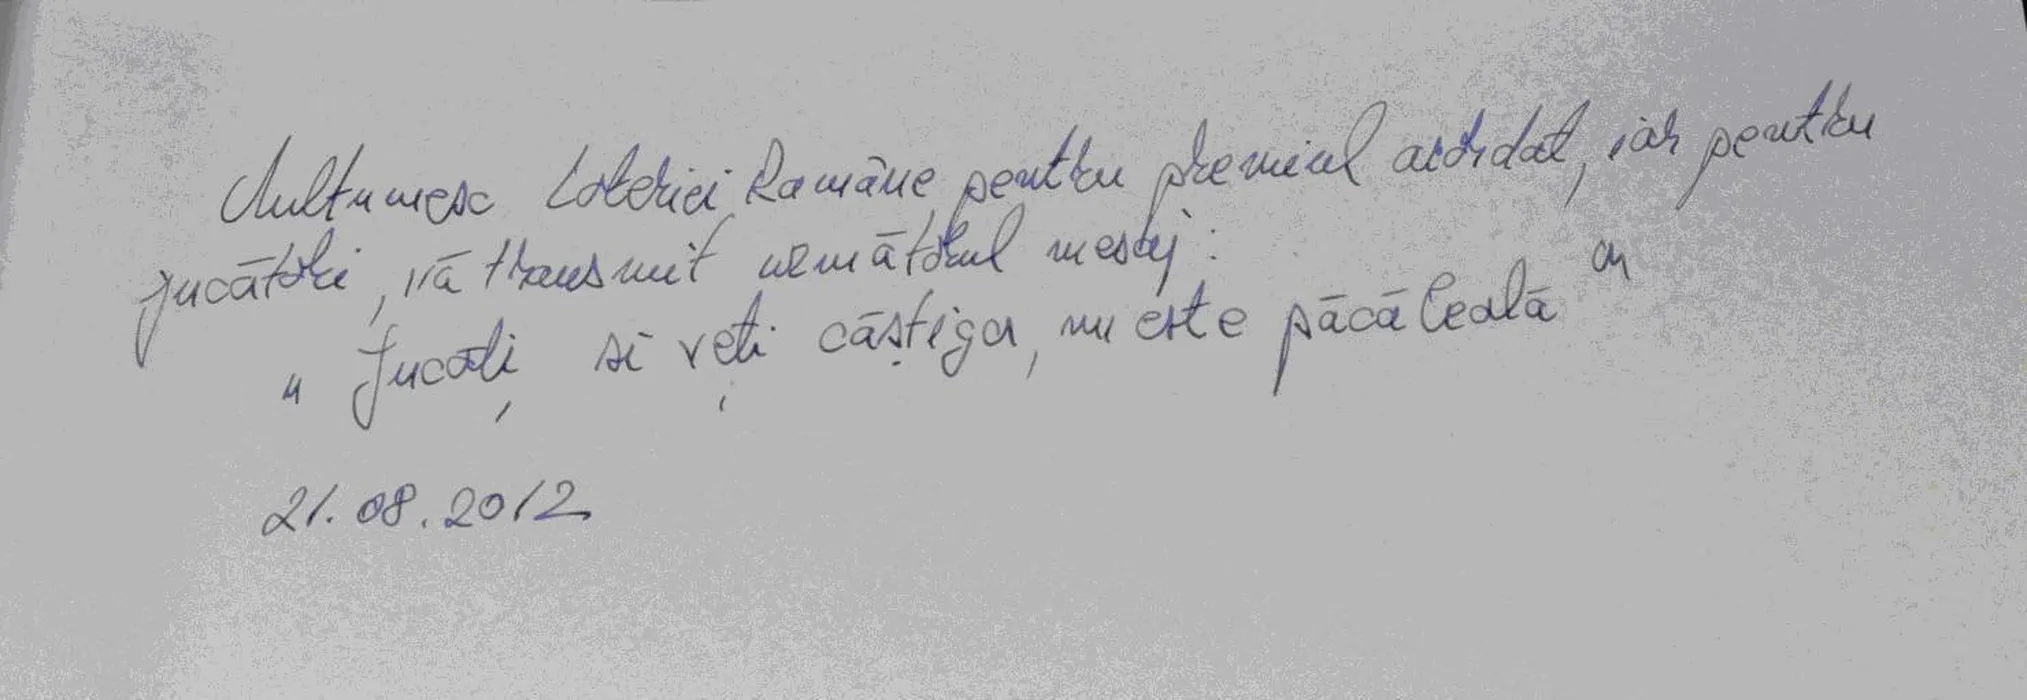 Multumesc Loteriei Române pentru premiul acordat, iar pentru
jucători, vă transmit următorul mesaj:
„ Jucați, si veți câștiga, nu este păcăleală "
21.08.2012